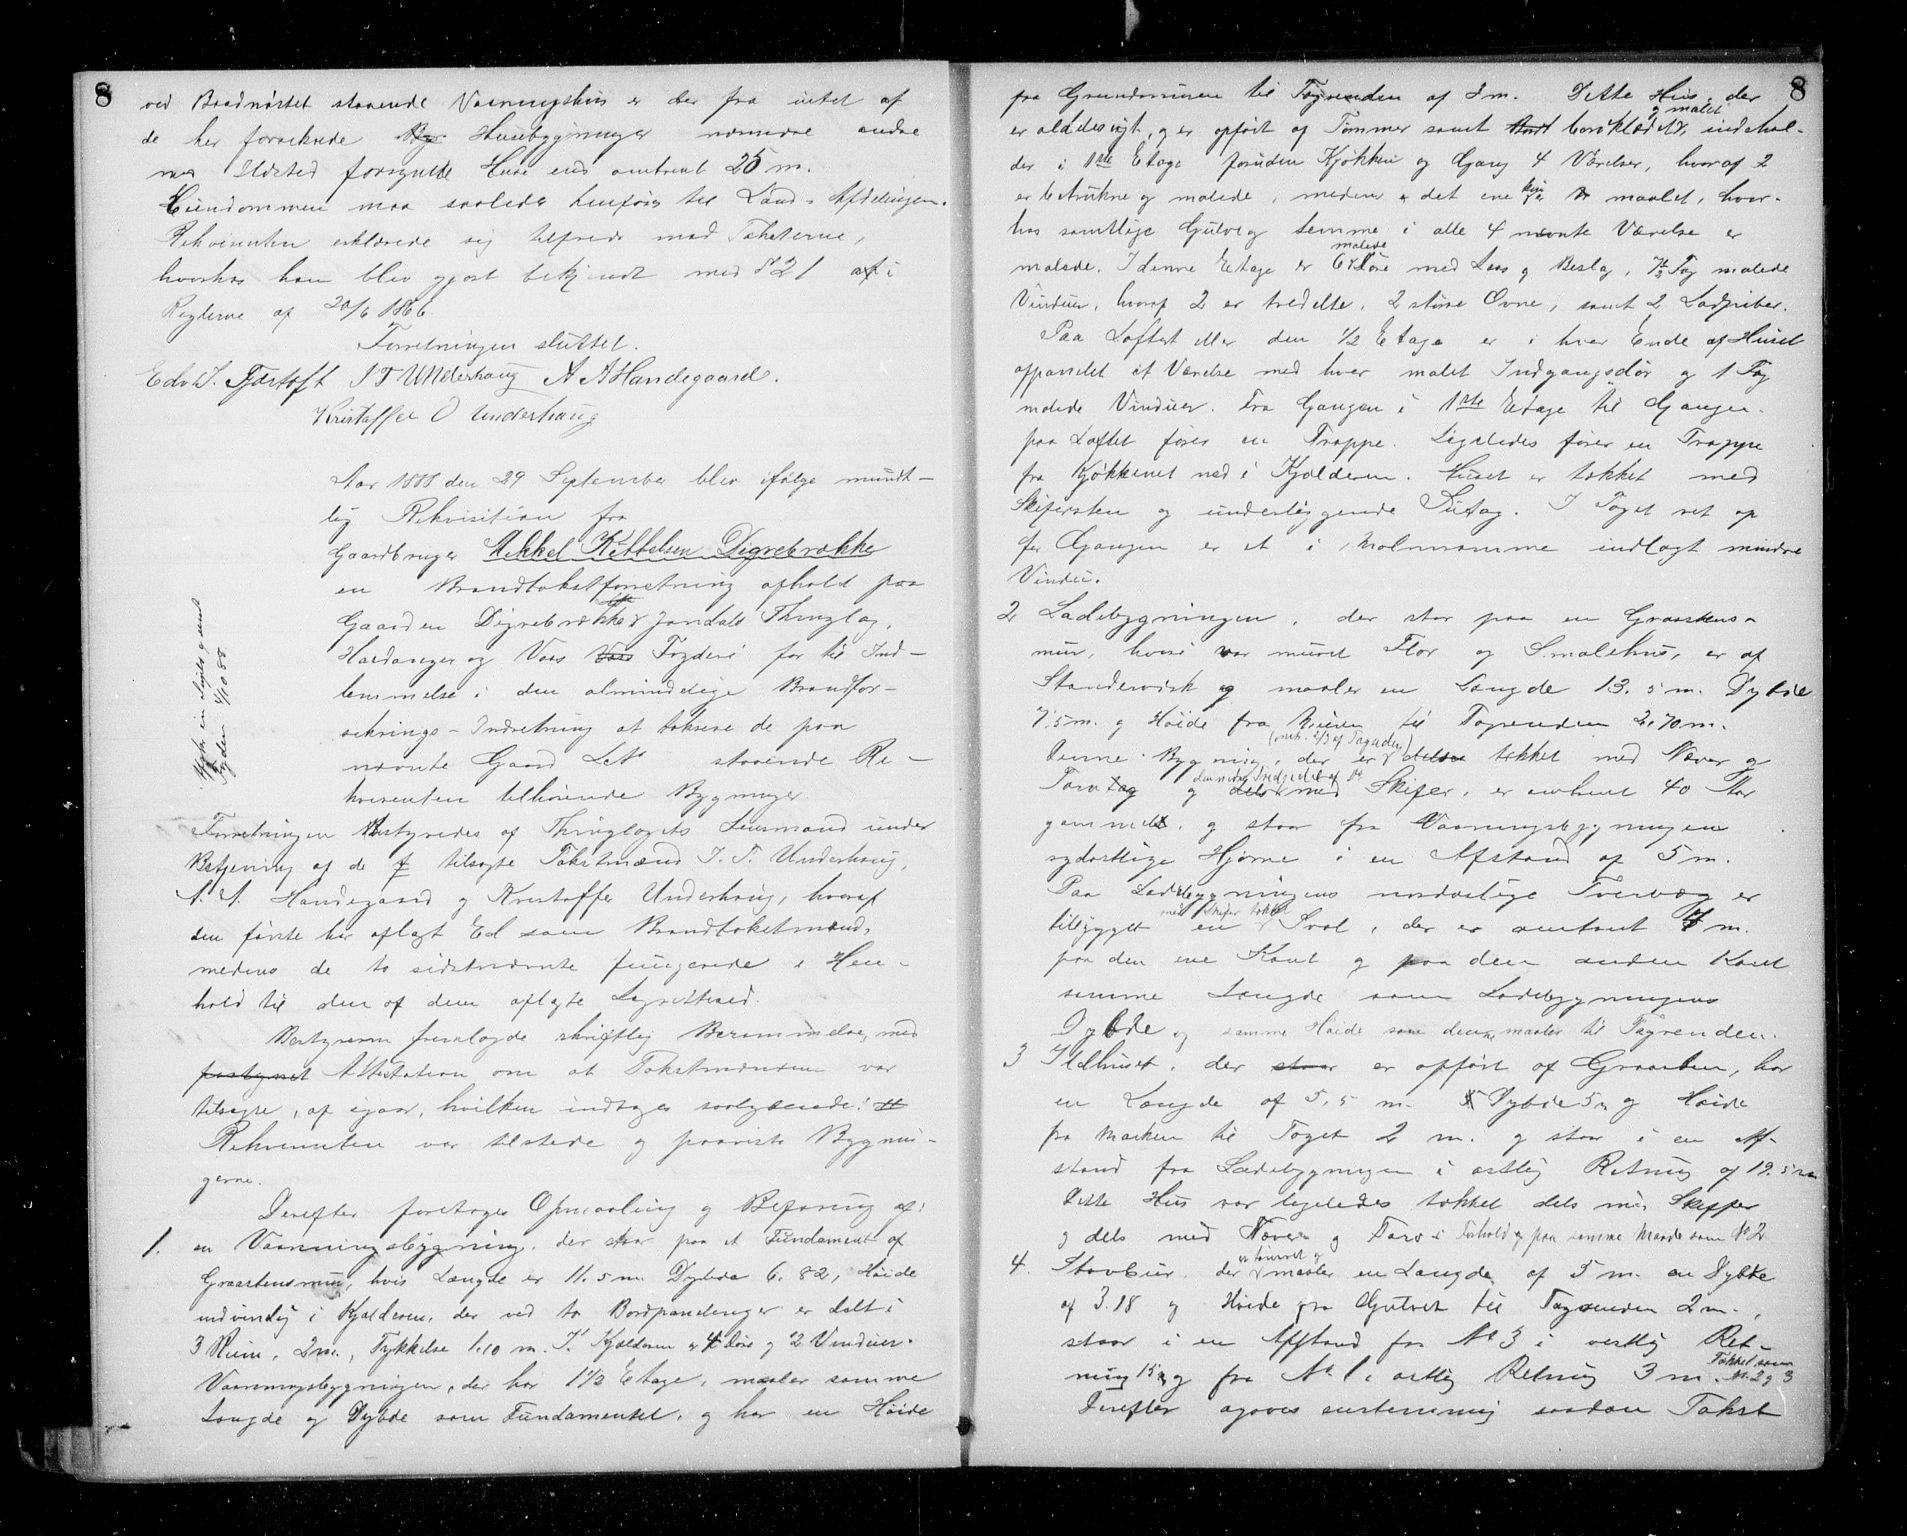 8
ved Baadnøstet staaende Vaaningshus er der fra intet af
de her forsikrede Byg Husebygninger nærmere andre
med Ildsted forsynede Huse end omtrent 25 m.
Eiendommen maa saaledes henføres til Land-Afdelingen.
Rekvirenten erklærede sig tilfreds med Taksterne,
hvorhos han blev gjort bekjendt med § 21 af i
Reglerne af 20/6 1866.
Forretningen sluttet.
Edv. J. Tjostoft I T Underhaug A A Handegaard.
Kristaffer O Underhaug
Aar 1888 den 29 September blev ifølge mundt-
lig Rekvisition fra
Gaardbruger Mikkel Kittelsen Digrebrække
en Brandtakstforretning afholdt paa
Gaarden Digrebrække i Jondals Thinglag,
Hardanger og Vors Vors Fogderi for til Ind-
lemmelse i den almindelige Brandfor-
sikrings-Indretning at taksere de paa
nævnte Gaard staaende Re-
kvirenten tilhørende Bygninger.
Forretningen bestyredes af Thinglagets Lensmand under
Betjening af de tilsagte Takstmænd I. T. Underhaug,
A. A. Handegaard og Kristoffer Underhaug, hvoraf
den første her aflagt Ed som Brandtakstmand,
medens de to sidstnævnte fungerede i Hen-
hold til den af dem aflagte Lagretteed.
Bestyreren fremlagde skriftlig Berammelse, med
paategnet Attestation om at Takstmændene var
tilsagte, af igaar, hvilken indtages saalydende:
Rekvirenten var tilstede og paaviste Bygnin-
gerne.
Derefter foretoges Opmaaling og Befaring af:
1. en Vaaningsbygning, der staar paa et Fundament af
Graastensmur, hvis Længde er 11.5 m. Dybde 6.82, Høide
indvendig i Kjælderen, der ved to Bordpanelinger er delt i
3 Rum, 2 m., Tykkelse 1.10 m. I Kjælderen er 4 Døre og 2 Vinduer.
Vaaningsbygningen, der har 1 1/2 Etage, maaler samme
Længde og Dybde som Fundamentet, og har en Høide
8
fra Grundmuren til Tagrenden af 3 m. Dette Hus, der
og malet
er aldeles nyt, og er opført af Tømmer samt bordklædet, indehol-
der i 1ste Etage foruden Kjøkken og Gang 4 Værelser, hvoraf 2
er betrukne og malede, medens det ene kun er maalet, hvor-
hos samtlige Gulve og Lemme i alle 4 nævnte Værelse er
malede
malede. I denne Etage er 6 Døre med Laas og Beslag, 7 1/2 Fag malede
Vinduer, hvoraf 2 er tredelte, 2 større Ovne, samt 2 Ladpiber.
Paa Loftet eller den 1/2 Etage er i hver Ende af Huset
oppanelet et Værelse med hver malet Indgangsdør og 1 Fag
malede Vinduer. Fra Gangen i 1ste Etage til Gangen
paa Loftet fører en Trappe. Ligeledes fører en Trappe
fra Kjøkkenet ned i Kjælderen. Huset er tækket med
Skifersten og underliggende Sutag. I Taget ret op
for Gangen er et i Malmramme indlagt mindre
Vindu.
2 Ladebygningen, der staar paa en Graastens-
mur, hvori var muret Flor og Smalehus, er af
Standerværk og maaler en Længde 13.5 m. Dybde
7.5 m. og Høide fra Muren til Tagrenden 2.70 m.
(omtr. 2/3 af Tagende)
Denne Bygning, der er delse tækket med Næver og
den nedre Tredjedel af
Torvtag og dels med Skifer, er omtrent 40 Aar
gammel, og staar fra Vaaningsbygningens
sydøstlige Hjørne i en Afstand af 5 m.
Paa Ladebygningens nordøstlige Tvervæg er
med Skifer tækket
tilbygget en Sval, der er omtrent 4 m.
paa den ene Kant og paa den anden Kant
samme Længde som Ladebygningens
Dybde og samme Høide som denne maaler til Tagrenden.
3 Ildhuset, der staar er opført af Graasten, har
en Længde af 5.5 m. Dybde 5 m og Høide
fra Marken til Taget 2 m. og staar i en Af-
stand fra Ladebygningen i østlig Retning af 19.5 m
Dette Hus var ligeledes tækket dels med Skiffer
og dels med Næver og Torv i Forhold og paa samme Maade som No 2
er tømret og
4. Stavbur, der maaler en Længde af 5 m. en Dybde
af 3.18 og Høide fra Gulvet til Tagrenden 2 m.,
staar i en Afstand fra No 3 i vestlig Ret-
ning 15 m og fra No 1 i østlig Retning 3 m. Tækket som
No 2 og 3
Derefter agaves enstemmig saadan Takst